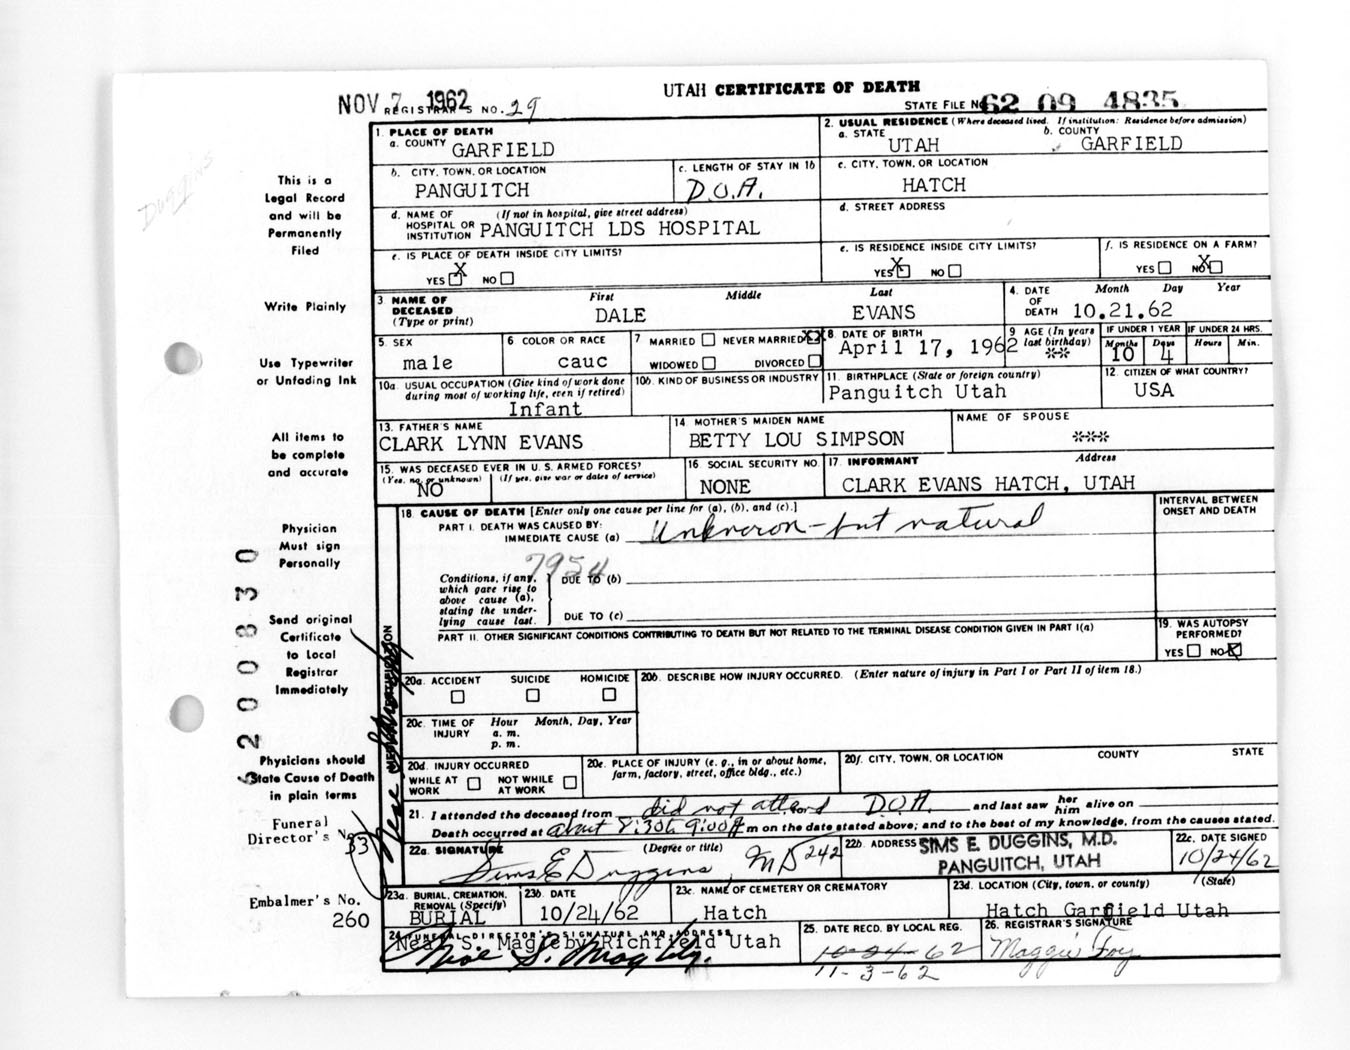 UTAH CERTIFICATE OF DEATH
NOV 7 1962 REGISTRAR'S NO. 29
STATE FILE NO. 62 09 4835
This is a
Legal Record
and will be
Permanently
Filed
Write Plainly
Use Typewriter
or Unfading Ink
All items to
be complete
and accurate
Physician
Must sign
Personally
Send original
Certificate
to Local
Registrar
Immediately
Physicians should
State Cause of Death
in plain terms
Funeral
Director's No.
33
Embalmer's No.
260
200830
Duggins
1. PLACE OF DEATH
a. COUNTY GARFIELD
2. USUAL RESIDENCE (Where deceased lived. If institution: Residence before admission)
a. STATE UTAH b. COUNTY GARFIELD
b. CITY, TOWN, OR LOCATION PANGUITCH
c. LENGTH OF STAY IN 1b D.O.A.
c. CITY, TOWN, OR LOCATION HATCH
d. NAME OF HOSPITAL OR INSTITUTION (If not in hospital, give street address) PANGUITCH LDS HOSPITAL
d. STREET ADDRESS
e. IS PLACE OF DEATH INSIDE CITY LIMITS?
YES X NO
e. IS RESIDENCE INSIDE CITY LIMITS?
YES X NO
f. IS RESIDENCE ON A FARM?
YES NO X
3. NAME OF DECEASED (Type or print) First Middle Last
DALE EVANS
4. DATE OF DEATH Month Day Year
10.21.62
5. SEX male
6 COLOR OR RACE cauc
7 MARRIED NEVER MARRIED XX
WIDOWED DIVORCED
8. DATE OF BIRTH
April 17, 1962
9 AGE (In years last birthday) **
IF UNDER 1 YEAR IF UNDER 24 HRS.
Months 10 Days 4 Hours Min.
10a. USUAL OCCUPATION (Give kind of work done during most of working life, even if retired)
Infant
10b. KIND OF BUSINESS OR INDUSTRY
11. BIRTHPLACE (State or foreign country)
Panguitch Utah
12. CITIZEN OF WHAT COUNTRY?
USA
13. FATHER'S NAME
CLARK LYNN EVANS
14. MOTHER'S MAIDEN NAME
BETTY LOU SIMPSON
NAME OF SPOUSE
***
15. WAS DECEASED EVER IN U. S. ARMED FORCES?
(Yes, no, or unknown) (If yes, give war or dates of service)
NO
16. SOCIAL SECURITY NO.
NONE
17. INFORMANT Address
CLARK EVANS HATCH, UTAH
18. CAUSE OF DEATH [Enter only one cause per line for (a), (b), and (c).]
INTERVAL BETWEEN ONSET AND DEATH
PART I. DEATH WAS CAUSED BY:
IMMEDIATE CAUSE (a) Unknown - but natural
7954
Conditions, if any, which gave rise to above cause (a), stating the under-lying cause last.
DUE TO (b)
DUE TO (c)
PART II. OTHER SIGNIFICANT CONDITIONS CONTRIBUTING TO DEATH BUT NOT RELATED TO THE TERMINAL DISEASE CONDITION GIVEN IN PART I(a)
19. WAS AUTOPSY PERFORMED?
YES NO X
20a. ACCIDENT SUICIDE HOMICIDE
20b. DESCRIBE HOW INJURY OCCURRED. (Enter nature of injury in Part I or Part II of item 18.)
20c. TIME OF INJURY Hour Month, Day, Year
a. m.
p. m.
20d. INJURY OCCURRED
WHILE AT WORK NOT WHILE AT WORK
20e. PLACE OF INJURY (e. g., in or about home, farm, factory, street, office bldg., etc.)
20f. CITY, TOWN, OR LOCATION COUNTY STATE
21. I attended the deceased from did not attend D.O.A. and last saw her him alive on
Death occurred at about 8:30 to 9:00 m on the date stated above; and to the best of my knowledge, from the causes stated.
22a. SIGNATURE (Degree or title)
Sims E Duggins, MD 242
22b. ADDRESS SIMS E. DUGGINS, M.D.
PANGUITCH, UTAH
22c. DATE SIGNED
10/24/62
23a. BURIAL, CREMATION, REMOVAL (Specify)
BURIAL
23b. DATE
10/24/62
23c. NAME OF CEMETERY OR CREMATORY
Hatch
23d. LOCATION (City, town, or county) (State)
Hatch Garfield Utah
24. FUNERAL DIRECTOR'S SIGNATURE AND ADDRESS
Neal S. Magleby Richfield Utah
Neal S. Magleby
25. DATE RECD. BY LOCAL REG.
10-24-62
11-3-62
26. REGISTRAR'S SIGNATURE
Maggie Foy